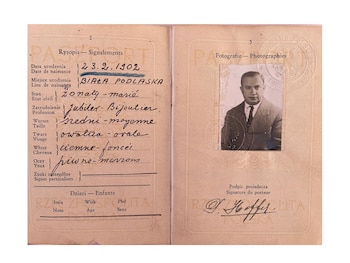 Rysopis — Signalement
Data urodzenia 23.2.1902
Date de naissance
Miejsce urodzenia BIAŁA PODLASKA
Lieu de naissance
Stan żonaty - marié
Etat civil
Zatrudnienie Jubiler - Bijoutier
Profession
Wzrost średni - moyenne
Taille
Twarz owalna - ovale
Visage
Włosy ciemne - foncés
Cheveux
Oczy piwne - marrons
Yeux
Znaki szczególne
Signes particuliers
Dzieci — Enfants
Imię Wiek Płeć
Nom Age Sexe
Fotografie — Photographies
Podpis posiadacza
Signature du porteur